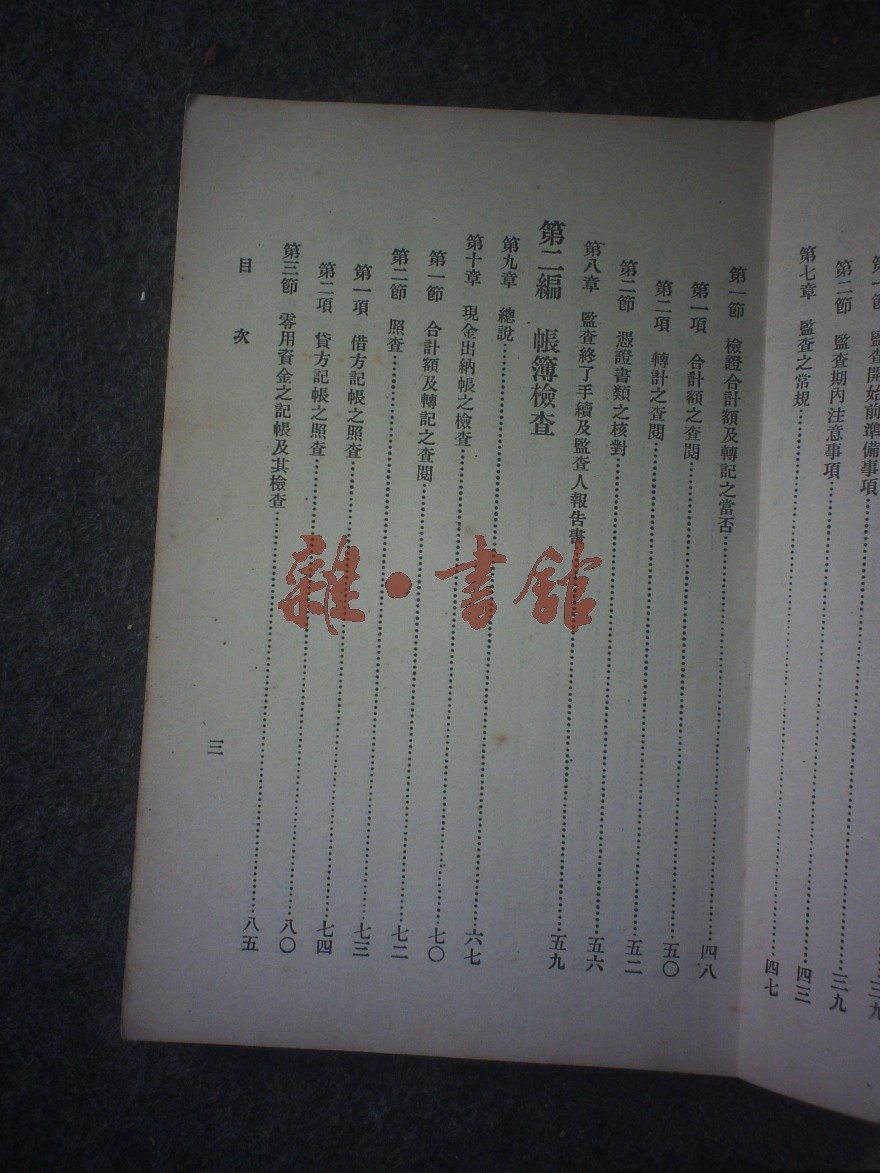 三九
第一節　監查開始前準備事項……三九
第二節　監查期內注意事項……四三
第七章　監查之常規……四七
第一節　檢證合計額及轉記之當否……四八
第一項　合計額之查閱……五〇
第二項　轉計之查閱……五二
第二節　憑證書類之核對……五六
第八章　監查終了手續及監查人報告書……五九
第二編　帳簿檢查
第九章　總說……六七
第十章　現金出納帳之檢查……七〇
第一節　合計額及轉記之查閱……七二
第二節　照查……七三
第一項　借方記帳之照查……七四
第二項　貸方記帳之照查……八〇
第三節　零用資金之記帳及其檢查……八五
目次
三
雜·書館